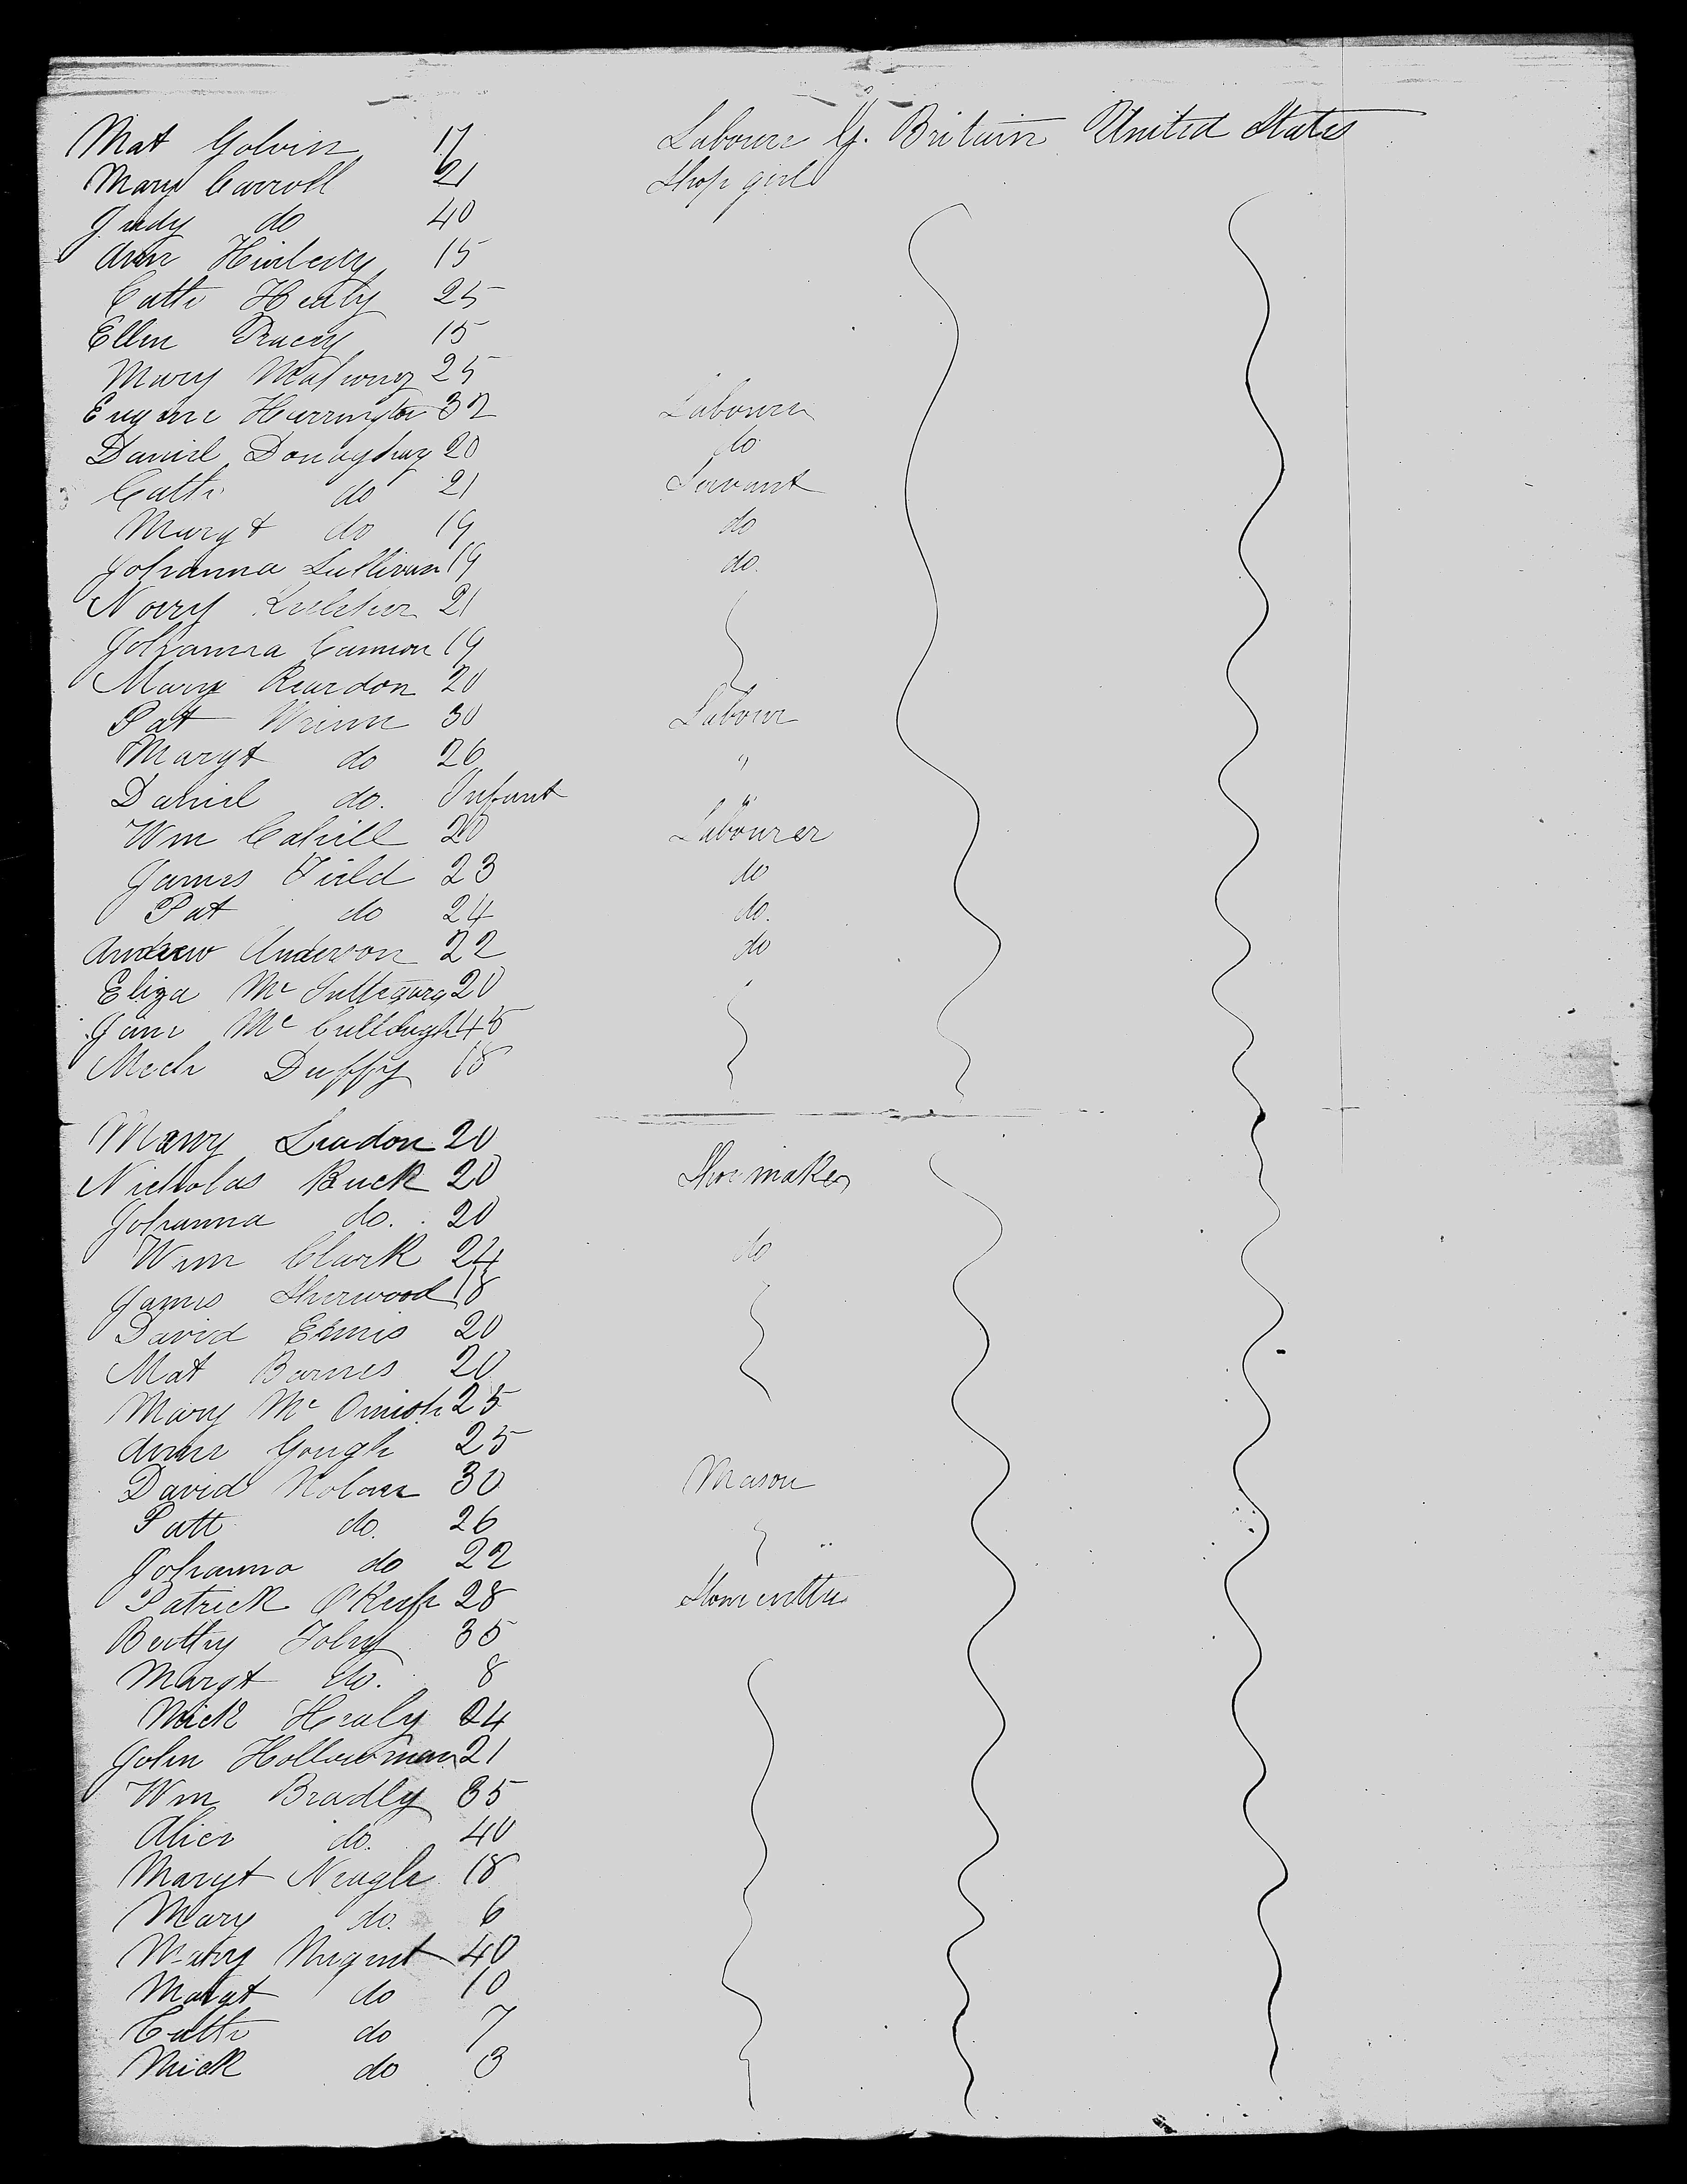 Mat Golvin 17 Labourer G. Britain United States
Mary Carroll 21 Shop girl
Judy do 40
Ann 15
Cathe Healy 25
Ellen Tracey 15
Mary Mahoney 25
Eugene Harrington 32 Labourer
Daniel Donaghay 20 do
Cathe do 21 Servant
Margt do 19 do
Johanna Sullivan 19 do.
Norry Keleher 21
Johanna Cannon 19
Mary Reardon 20
Pat Wrinn 30 Labour
Margt do 26 "
Daniel do. Infant "
Wm Cahill 20 Labourer
James Field 23 do
Pat do 24 do.
Andrew Anderson 22 do
Eliza Mc 20
Jane Mc Cullough 45
Mich Duffy 18
Mary Leadon 20
Nicholas Buck 20 Shoemaker
Johanna do. 20
Wm Clark 24 do
James Sherwood 18
David Ennis 20
Mat Barnes 20
Mary Mc Omish 25
Anne Gough 25
David Nolan 30 Mason
Patt do. 26
Johanna do 22
Patrick O'Keefe 28 Stone cutter
Betty Foley 35
Margt do. 8
Mick Healy 24
John Hollowman 21
Wm Bradly 35
Alice do. 40
Margt Neagle 18
Mary do. 6
Mary Nugent 40
Margt do 10
Cathe do 7
Mick do 3